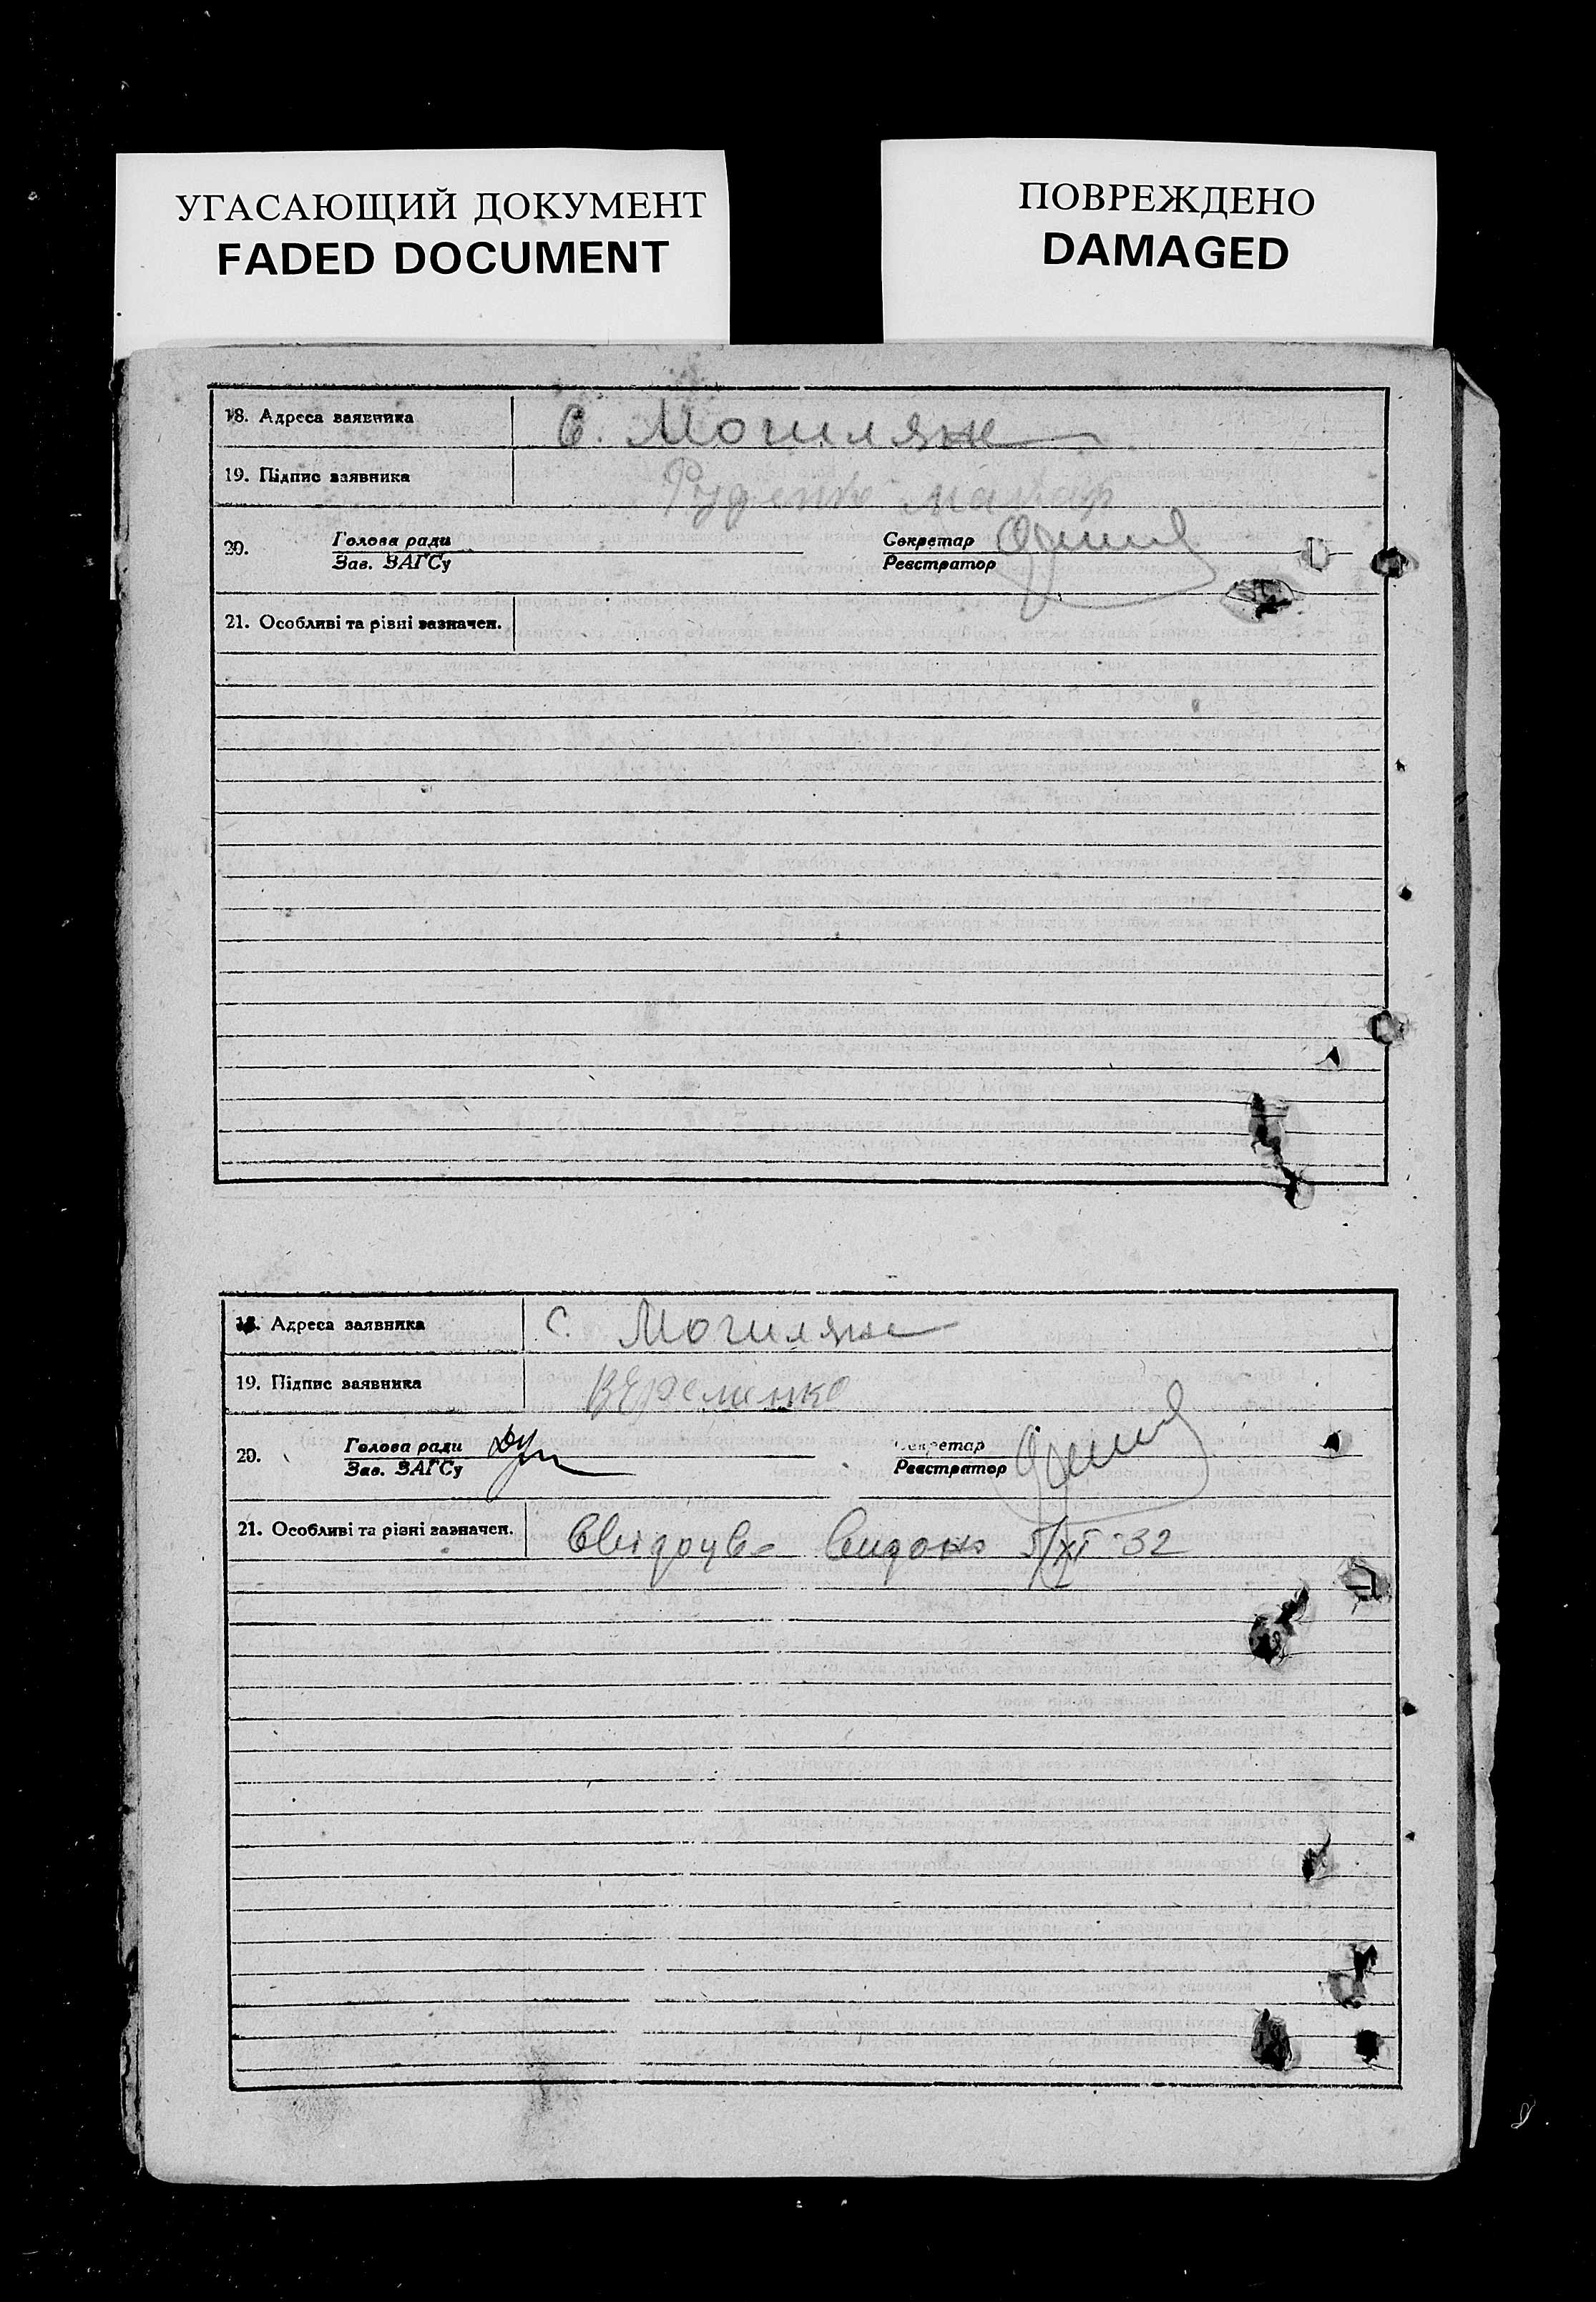 УГАСАЮЩИЙ ДОКУМЕНТ
FADED DOCUMENT
ПОВРЕЖДЕНО
DAMAGED
18. Адреса заявника С. Могиляне
19. Підпис заявника Руденко
20. Голова ради Секретар
Зав. ЗАГСу Реєстратор
21. Особливі та рівні зазначен.
18. Адреса заявника С. Могиляне
19. Підпис заявника ВЄременко
20. Голова ради Секретар
Зав. ЗАГСу Реєстратор
21. Особливі та різні зазначен. 5/XI-32